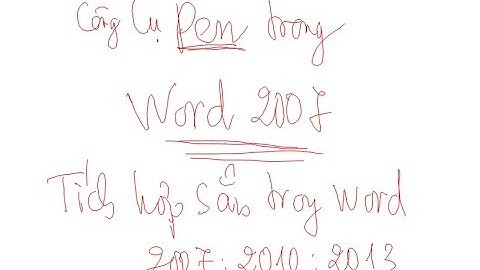 Công Cụ Pen trong
Word 2007
Tích hợp sẵn trong Word
2007; 2010; 2013